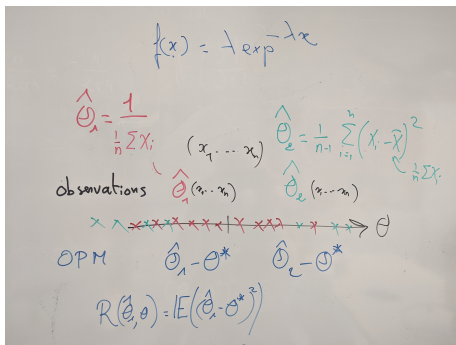 f(x) = λ exp^{-λx}
Θ̂₁ = 1 / (1/n ΣXᵢ)
(x₁ ... xₙ)
Θ̂₂ = 1/(n-1) Σᵢ₌₁ⁿ (Xᵢ - X̄)²
1/n ΣXᵢ
Observations Θ̂₁ (x₁...xₙ) Θ̂₂ (x₁...xₙ)
Θ
OPM Θ̂₁ - Θ* Θ̂₂ - Θ*
R(Θ̂₁, Θ) = IE((Θ̂₁ - Θ*)²)